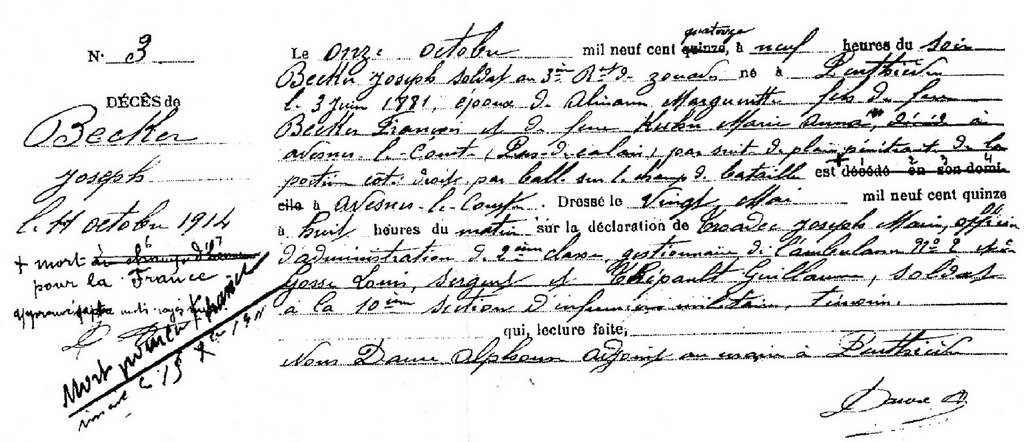 N. 3
DÉCÈS de
Becker
Joseph
le 11 octobre 1914
+ mort
pour la France
mots rayés
Mort pour la France
quatorze
Le onze octobre mil neuf cent quinze, à neuf heures du soir
Becker Joseph soldat au 3è Rt de zouaves né à Penthièvre
le 3 juin 1881, époux de Margueritte fils de feu
Becker François et de feue Kuhn Marie Anna, décédé à
Avesnes-le-Comte (Pas-de-Calais) par suite de plaie pénétrante de la
poitrine coté droit par balle sur le champ de bataille est décédé en son domi
cile à Avesnes-le-Comte. Dressé le Vingt Mai mil neuf cent quinze
à huit heures du matin sur la déclaration de Joseph Marie, officier
d'administration de 2ème classe, gestionnaire de l'ambulance No 2
Gosse Louis, sergent et Thépault Guillaume, soldat
à la 10ème section d'infirmiers militaires témoins.
qui, lecture faite,
Nous Dauve Alphonse adjoint au maire à Penthièvre
Dauve A